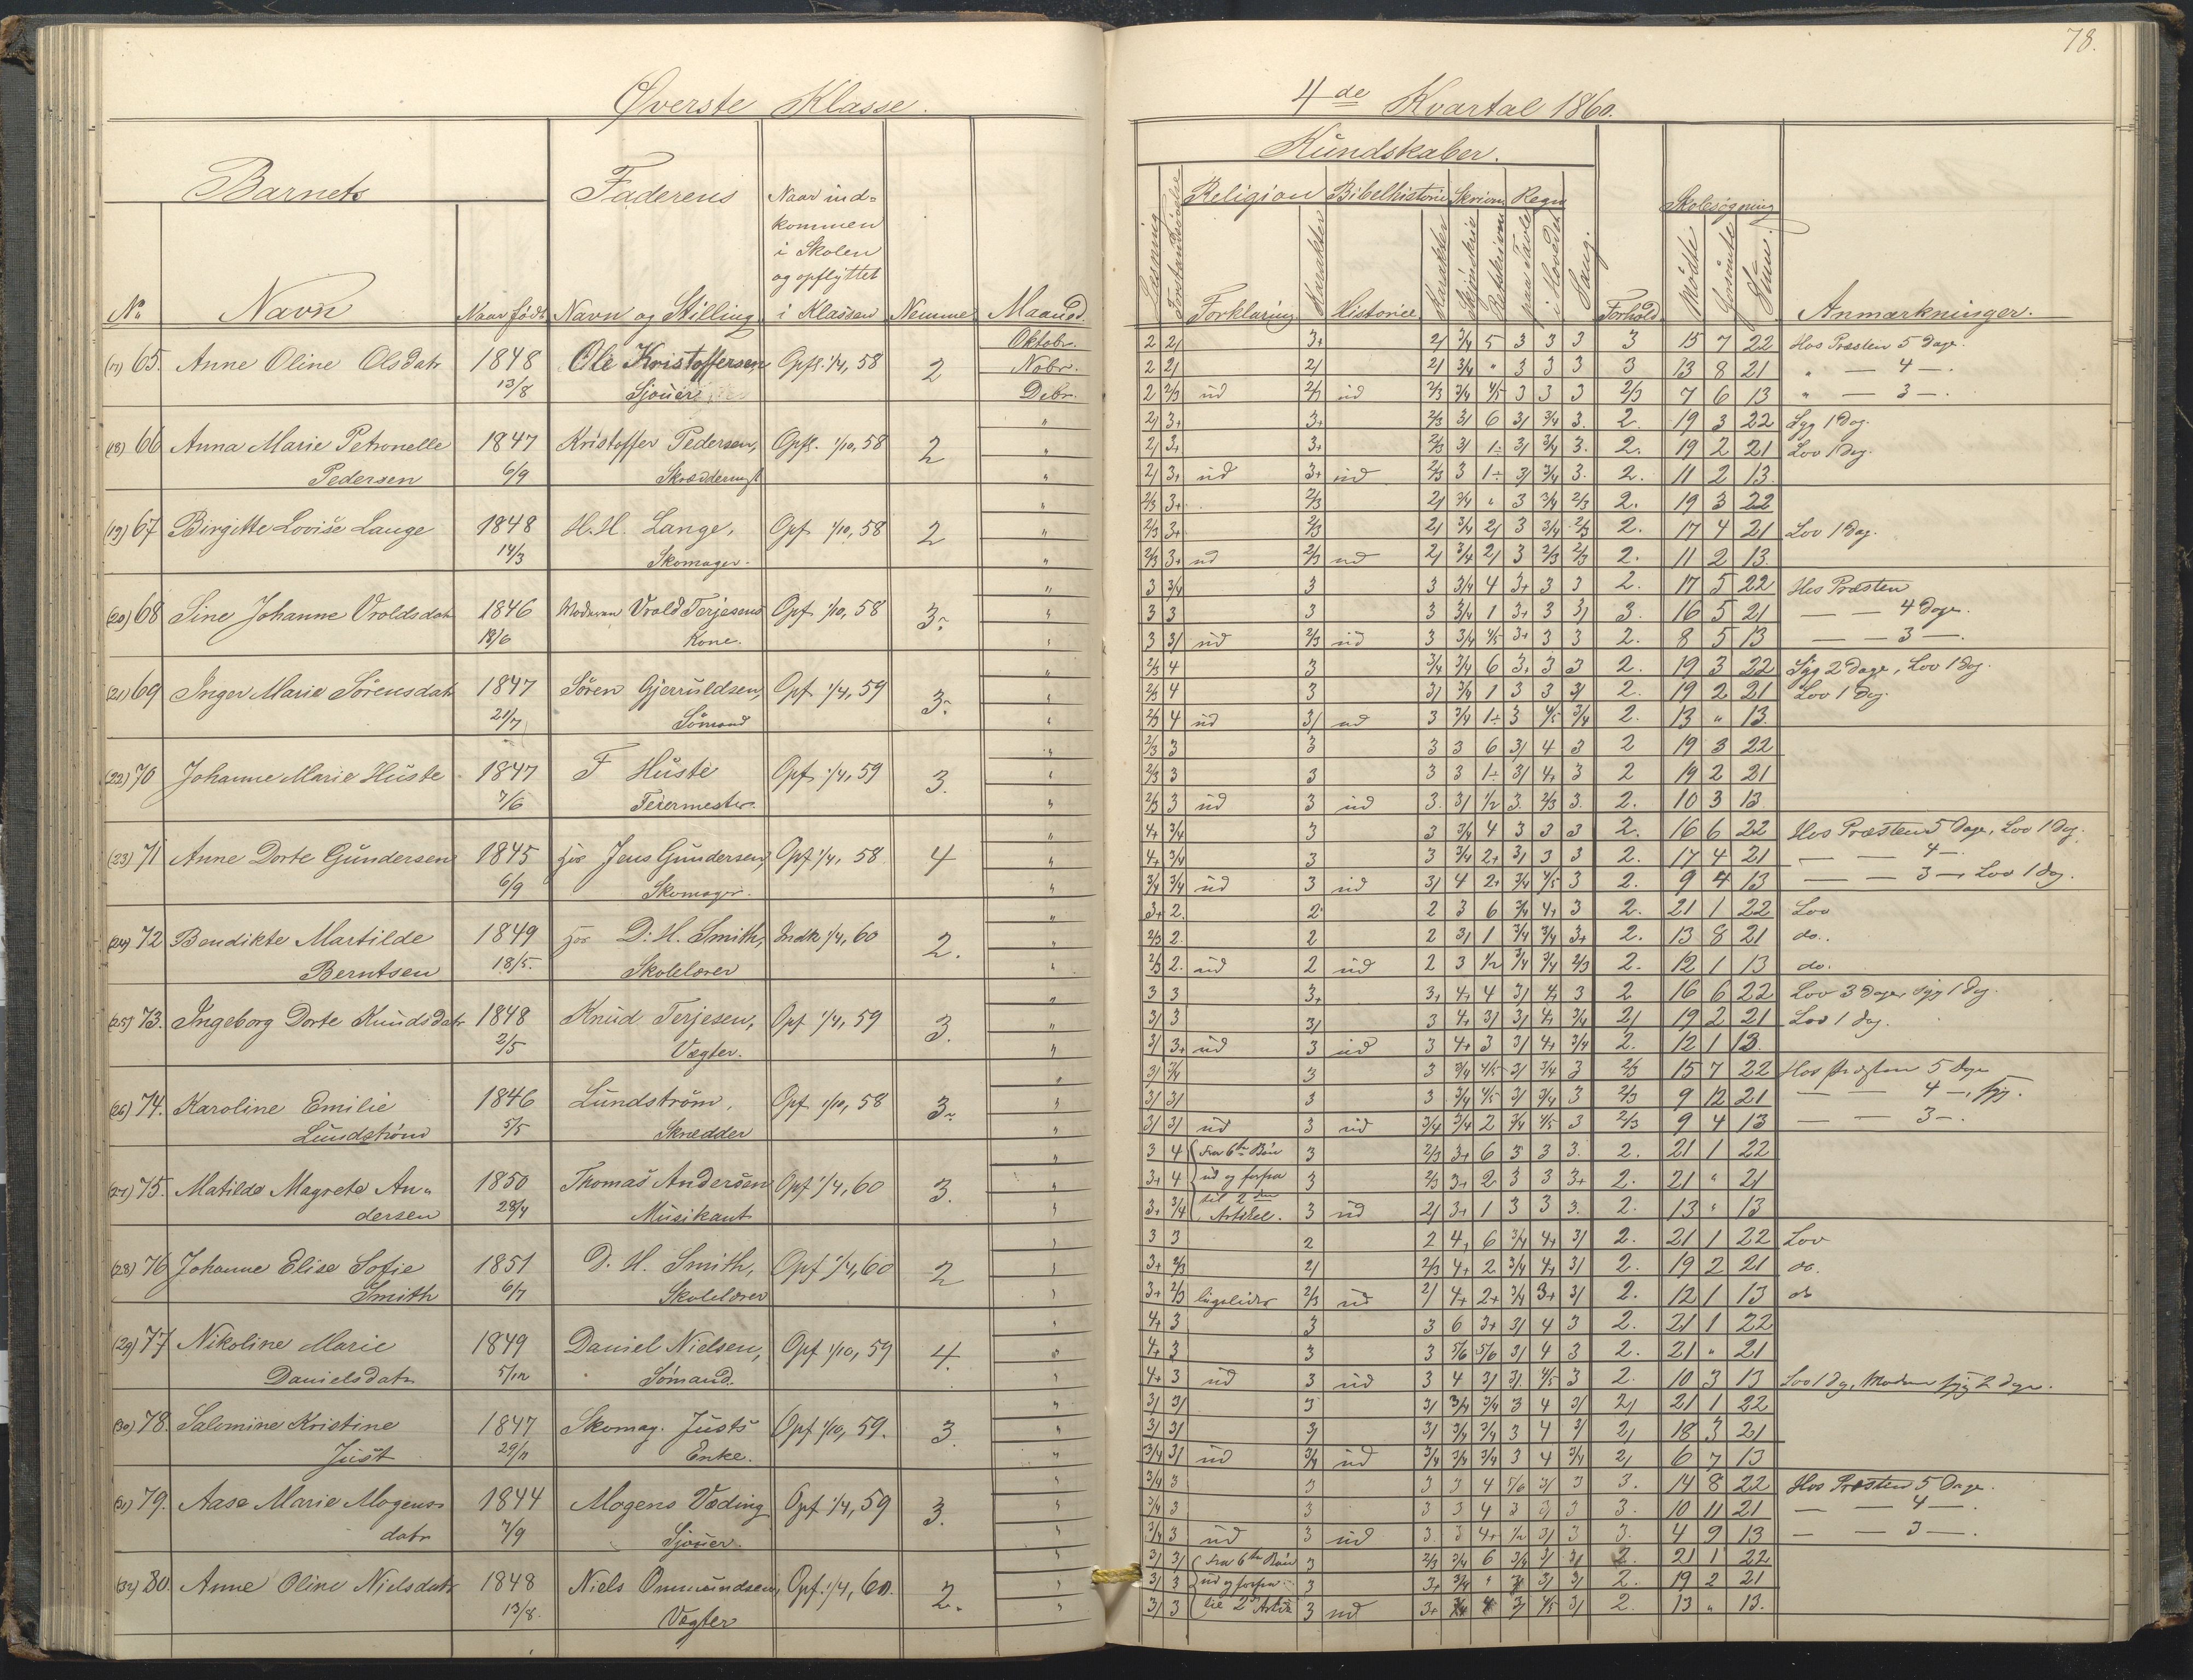 78.
Øverste Klasse.
4de Kvartal 1860.
Barnets
Faderens
Naar ind-
kommen
i Skolen
og opflyttet
i Klassen
No
Navn
Naar født
Navn og Stilling
Nemme
Maaned.
Kundskaber.
Læsning
Forstandsøvelse
Religion
Bibelhistorie
Skrivn.
Regn.
Forklaring
Karakter
Historie
Karakter
Skjønskriv
Retskrivn
paa Tavle
i Hovedet
Sang.
Forhold
Skolesøgning
Mødte
Forsømte
Sum.
Anmærkninger.
(17) 65. Anne Oline Olsdatr 1848 Ole Kristoffersen, Opfl. 1/4, 58 2 Oktobr. 2 2/ 3+ 2/ 3/4 5 3 3 3 3 15 7 22 Hos Præsten 5 Dage.
Nobr. 2 2/ 2/ 2/ 3/4 " 3 3 3 3 13 8 21 " — 4 —.
13/8 Sjouer Debr. 2 2/3 ud 2/3 ud 2/3 3/4 4/5 3 3 3 2/3 7 6 13 " — 3 —.
(18) 66 Anna Marie Petronelle 1847 Kristoffer Pedersen, Opfl. 1/10, 58 2 " 2/ 3+ 3+ 2/3 3/ 6 3/ 3/4 3. 2. 19 3 22 Syg 1 Dag.
" 2/ 3+ 3+ 2/3 3/ 1÷ 3/ 3/4 3. 2. 19 2 21 Lov 1 Dag.
Pedersen 6/9 Skræddermst " 2/ 3+ ud 3+ ud 2/3 3 1÷ 3/ 3/4 3. 2. 11 2 13.
(19) 67 Birgitte Lovise Lange 1848 H. H. Lange, Opf. 1/10, 58 2 " 2/3 3+ 2/3 2/ 3/4 " 3 3/4 2/3 2. 19 3 22
" 2/3 3+ 2/3 2/ 3/4 2/ 3 3/4 2/3 2. 17 4 21 Lov 1 Dag.
14/3 Skomager. " 2/3 3+ ud 2/3 ud 2/ 3/4 2/ 3 2/3 2/3 2. 11 2 13.
(20) 68 Sine Johanne Vroldsdatr 1846 Moderen Vrold Terjesens Opf. 1/10, 58 3. " 3 3/4 3 3 3/4 4 3+ 3 3 2. 17 5 22 Hos Præsten
" 3 3 3 3 3/4 1 3+ 3 3/ 3. 16 5 21 — — 4 Dage.
18/6 Kone. " 3 3/ ud 2/3 ud 3 3/4 4/5 3+ 3 3 2. 8 5 13 — — 3 —.
(21) 69 Inger Marie Sörensdatr 1847 Sören Gjeruldsen, Opf. 1/4, 59 3. " 2/3 4 3 3/4 3/4 6 3. 3 3 2. 19 3 22 Syg 2 Dage, Lov 1 Dag.
" 2/3 4 3 3/ 3/4 1 3 3 3/ 2. 19 2 21 Lov 1 Dag.
21/7 Sömand " 2/3 4 ud 3/ ud 3 3/4 1÷ 3 4/5 3/4 2. 13 " 13.
(22) 70 Johanne Marie Huste 1847 F Huste Opf. 1/4, 59 3. " 2/3 3 3 3 3 6 3/ 4 3 2 19 3 22
" 2/3 3 3 3 3 1÷ 3/ 4+ 3 2 19 2 21
7/6 Feiermester. " 2/3 3 ud 3 ud 3. 3/ 1/2 3. 2/3 3. 2. 10 3 13
(23) 71 Anne Dorte Gundersen 1845 hos Jens Gundersen, Opf. 1/4, 58 4 " 4+ 3/4 3 3 3/4 4 3 3 3 2. 16 6 22 Hos Præsten 5 Dage, Lov 1 Dag.
" 4+ 3/4 3 3 3/4 2+ 3/ 3 3 2. 17 4 21 — — 4 —.
6/9 Skomager. " 3/4 3/4 ud 3 ud 3/ 4 2+ 3/4 4/5 3 2. 9 4 13 — — 3 —, Lov 1 Dag.
(24) 72 Bendikte Martilde 1849 hos D. H. Smith, Indk 1/4, 60 2. " 3+ 2. 2 2 3 6 3/4 4+ 3 2. 21 1 22 Lov
" 2/3 2. 2 2 3/ 1 3/4 3/4 3+ 2. 13 8 21 do.
Berntsen 18/5. Skolelærer " 2/3 2. ud 2 ud 2 3 1/2 3/4 3/4 2/3 2. 12 1 13 do.
(25) 73. Ingeborg Dorte Knudsdatr 1848 Knud Terjesen, Opf 1/4, 59 3. " 3 3 3+ 3+ 4+ 4 3/ 4+ 3 2 16 6 22 Lov 3 Dage, syg 1 Dag.
" 3/ 3 3/ 3 4+ 3/ 3/ 4+ 3/4 2/ 19 2 21 Lov 1 Dag.
2/5 Vægter. " 3/ 3+ ud 3 ud 3 4+ 3 3/ 4+ 3/4 2. 12 1 13.
(26) 74. Karoline Emilie 1846 Lundström, Opf 1/10, 58 3. " 3/ 3/4 3 3 3/4 4/5 3/ 3/4 3 2/3 15 7 22 Hos Præsten 5 Dage
" 3/ 3/ 3 3 3/4 4/5 3/ 3/4 3 2/3 9 12 21 — — 4 —, syg.
Lundström 5/5 Skrædder " 3/ 3/ ud 3 ud 3/4 3/4 2 3/4 4/5 3 2/3 9 4 13 — — 3 —.
(27) 75. Matilde Magrete An- 1850 Thomas Andersen Opf 1/4, 60 3. " 3 4 Fra 6te Bön 3 2/3 3+ 6 3 3 3. 2. 21 1 22
" 3+ 4 ud og forfra 3 2/3 3+ 2 3 3 3+ 2. 21 " 21
dersen 28/4 Musikant " 3+ 3/4 til 2den Artikel. 3 ud 2/ 3+ 1 3 3 3. 2. 13 " 13
(28) 76 Johanne Elise Sofie 1851 D. H. Smith, Opf 1/4, 60 2 " 3 3 2 2 4+ 6 3/4 4+ 3/ 2. 21 1 22 Lov
" 3+ 2/3 2/ 2/3 4+ 2 3/4 4+ 3/ 2. 19 2 21 do.
Smith 6/7 Skolelærer " 3+ 2/3 ligeledes 2/3 ud 2/ 4+ 2+ 3/4 3+ 3/ 2. 12 1 13 do
(29) 77 Nikoline Marie 1849 Daniel Nielsen, Opf 1/10, 59 4. " 4+ 3 3 3 6 3+ 3/ 4 3 2. 21 1 22
" 4+ 3 3 3 5/6 5/6 3/ 4 3 2. 21 " 21
Danielsdatr 5/12 Sömand. " 4+ 3 ud 3 ud 3 4 3/ 3/ 4/5 3 2. 10 3 13 Lov 1 Dag, Moderen syg 2 Dage.
(30) 78. Salomine Kristine 1847 Skomag. Justs Opf 1/10, 59. 3. " 3/ 3/ 3 3/ 3/4 3/4 3 4 3/ 2/ 21 1 22
" 3/ 3/ 3/ 3/ 3/4 3/4 3 4 3/ 2/ 18 3 21
Just 29/11 Enke. " 3/4 3/ ud 3/4 ud 3/4 3/4 3/4 3 4 3/4 2/ 6 7 13
(31) 79. Aase Marie Mogens- 1844 Mogens Væding Opf 1/4, 59 3. " 3/4 3 3 3 3 4 5/6 3/ 3 3. 14 8 22 Hos Præsten 5 Dage.
" 3/4 3 3 3 3 4 3 3/ 3 3. 10 11 21 — — 4 —.
datr 7/9 Sjouer. " 3/4 3 ud 3 ud 3 3 4+ 1/2 3/ 3 3. 4 9 13 — — 3 —.
(32) 80. Anne Oline Nielsdatr 1848 Niels Ommundsen, Opf. 1/4, 60. 2. " 3/ 3/ Fra 6te Bön 3 2/3 3/4 6 3/4 3/ 3/ 2. 21 1 22
" 3/ 3 ud og forfra 3 3+ 3/4 " 3 3/ 3/ 2. 19 2 21
13/8. Vægter " 3/ 3 til 2d Artik 3 ud 3+ 3/4 4 3/ 4/5 3/ 2. 13 " 13.